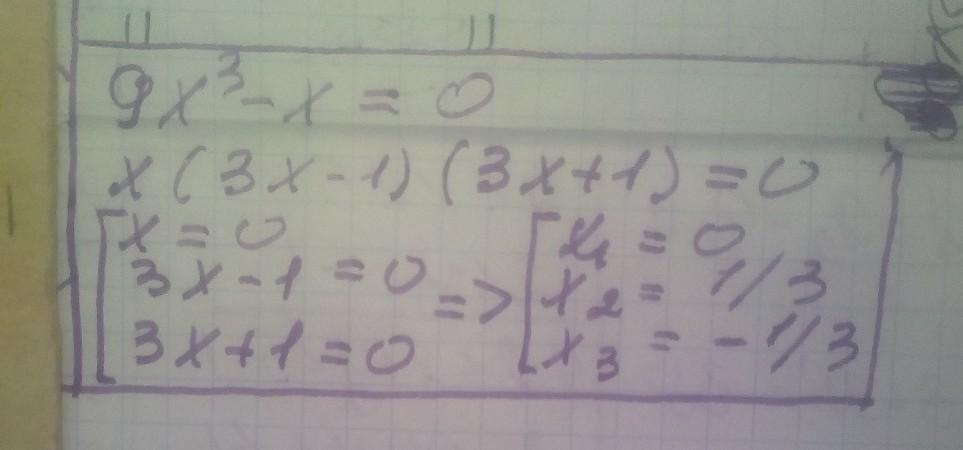 9x³ - x = 0
x(3x-1)(3x+1) = 0
[x = 0
3x-1 = 0
3x+1 = 0
=> [x₁ = 0
x₂ = 1/3
x₃ = - 1/3